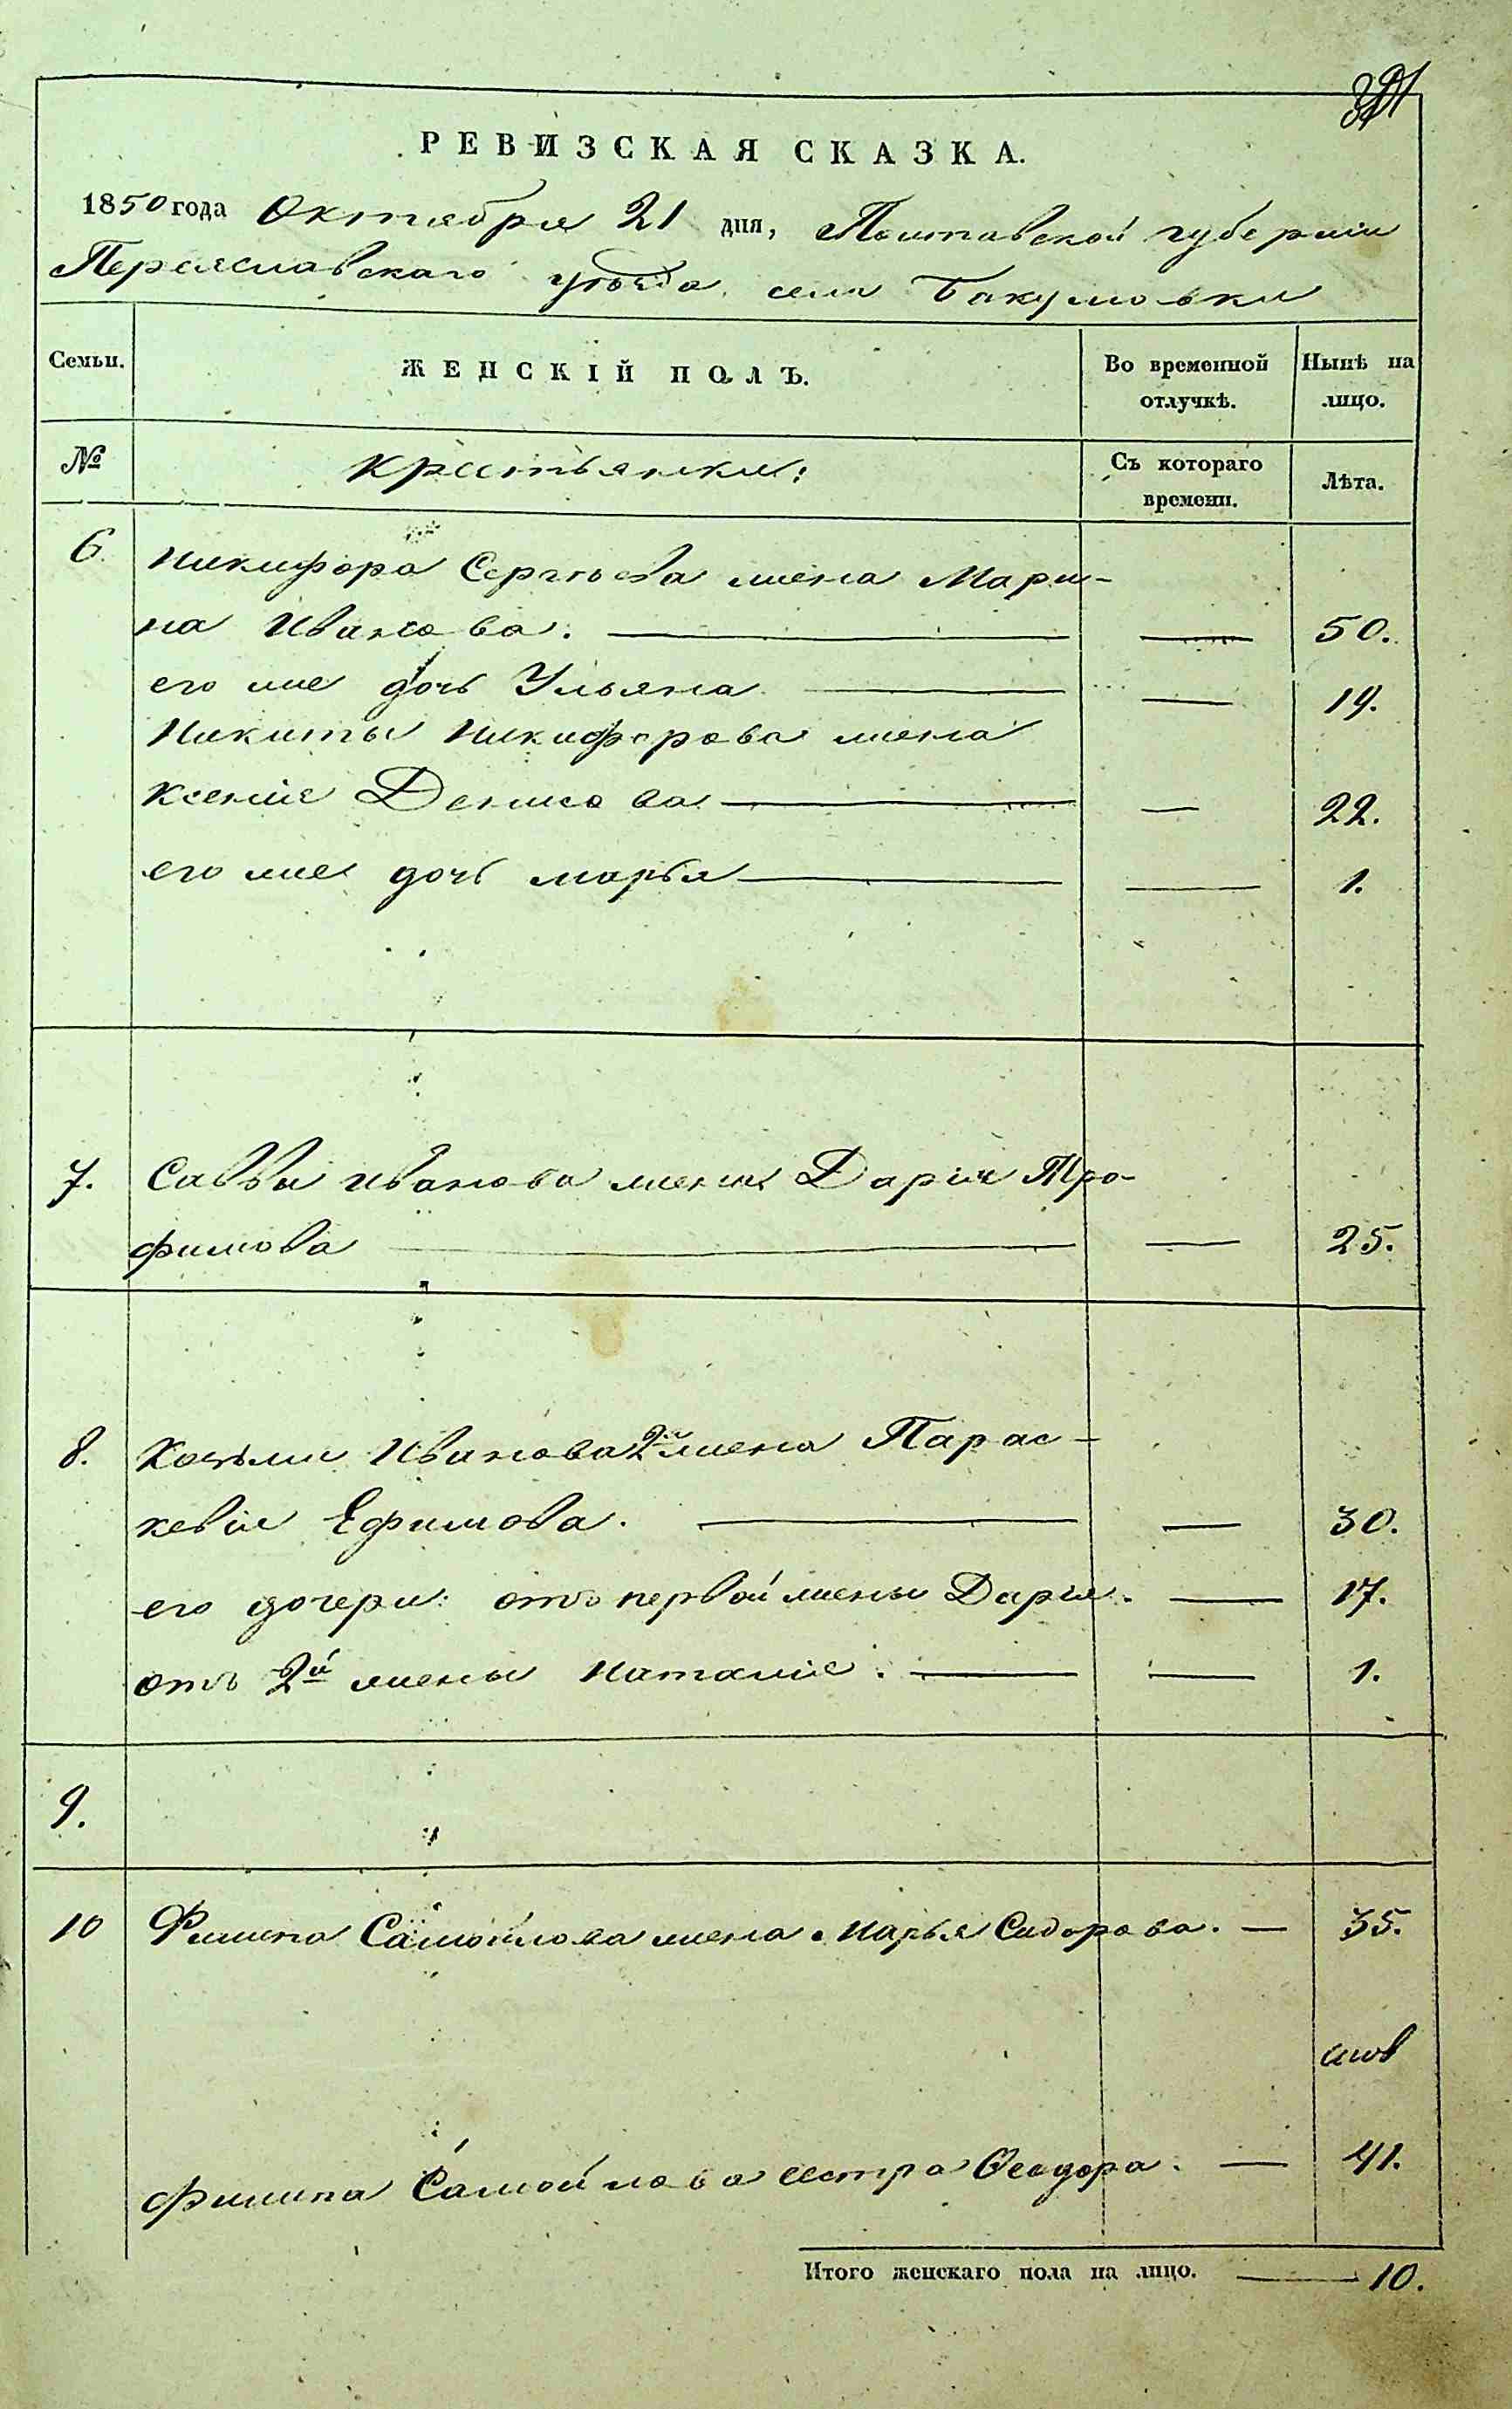 РЕВИЗСКАЯ СКАЗКА.
1850 года Октября 21 дня, Полтавской губернии
Переяславскаго уѣзда села Бакумовки
Семьи.
ЖЕНСКІЙ ПОЛЪ.
Во временной отлучкѣ.
Нынѣ на лицо.
№
Крестьянки:
Съ котораго времени.
Лѣта.
6. Никифора Сергѣева жена Мари-
на Иванова. — — 50.
его же дочь Ульяна — — 19.
Никиты Никифорова жена
Ксенія Денисова — — 22.
его же дочь марья — — 1.
7. Саввы Иванова жена Дарія Тро-
фимова — — 25.
8. Козьмы Иванова 2я жена Парас-
кевія Ефимова. — — 30.
его дочери: отъ первой жены Дарья. — 17.
отъ 2й жены Наталія. — — 1.
9.
10 Филипа Самойлова жена Марья Сидорова. — 35.
Филипа Самойлова сестра Ѳеодора. — 41.
Итого женскаго пола на лицо. — 10.